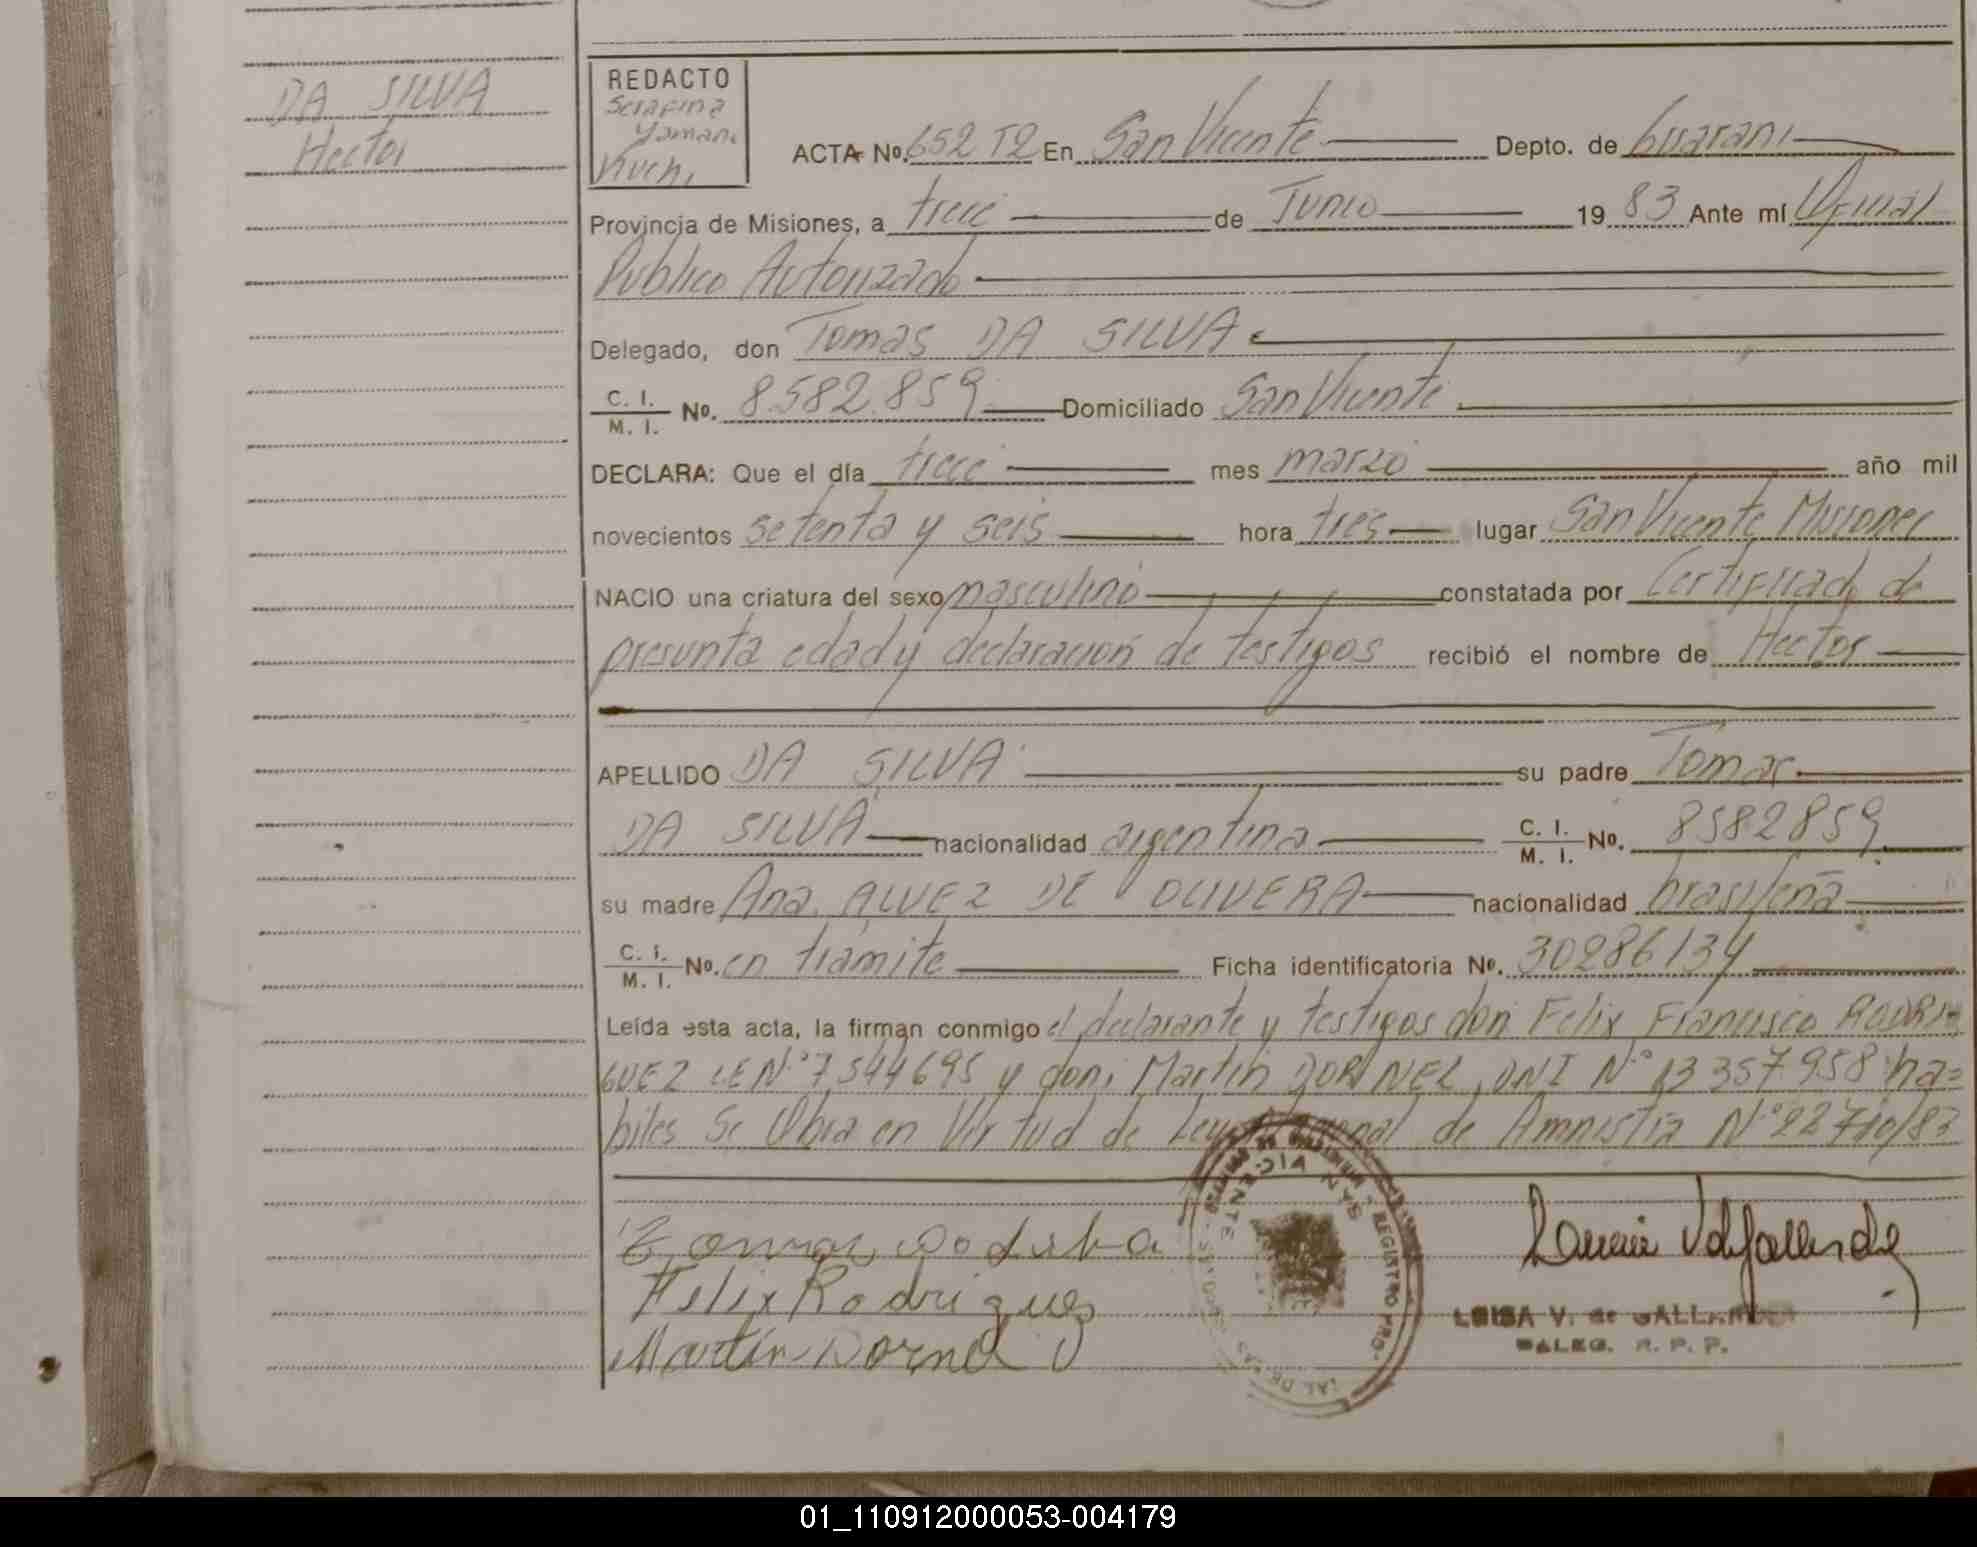 DA SILVA
Hector
REDACTO
Serafina
Yaman.
Kuch.
ACTA No. 652 T2 En San Vicente Depto. de Guarani
Provincia de Misiones, a trece de Junio 19 83 Ante mí Oficial
Publico Autorizado
Delegado, don Tomas DA SILVA
C. I. / M. I. No. 8.582.859 Domiciliado San Vicente
DECLARA: Que el día trece mes marzo año mil
novecientos setenta y seis hora tres lugar San Vicente Misiones
NACIO una criatura del sexo masculino constatada por Certificado de
presunta edad y declaración de testigos recibió el nombre de Hector
APELLIDO DA SILVA su padre Tomas
DA SILVA nacionalidad argentina C. I. / M. I. No. 8582859
su madre Ana ALVEZ DE OLIVERA nacionalidad brasileña
C. I. / M. I. No. en trámite Ficha identificatoria No. 30286134
Leída esta acta, la firman conmigo el declarante y testigos don Felix Francisco RODRI-
GUEZ LE N° 7544695 y don Martin DORNEL, DNI N° 13357958 há-
biles Se Obra en Virtud de Ley de Amnistia N° 22710/83
SAN VICENTE
REGISTRO PRO-
Felix Rodrigues
Martin Dornel
LUISA V. de GALLARDO
DALEG. R. P. P.
01_110912000053-004179